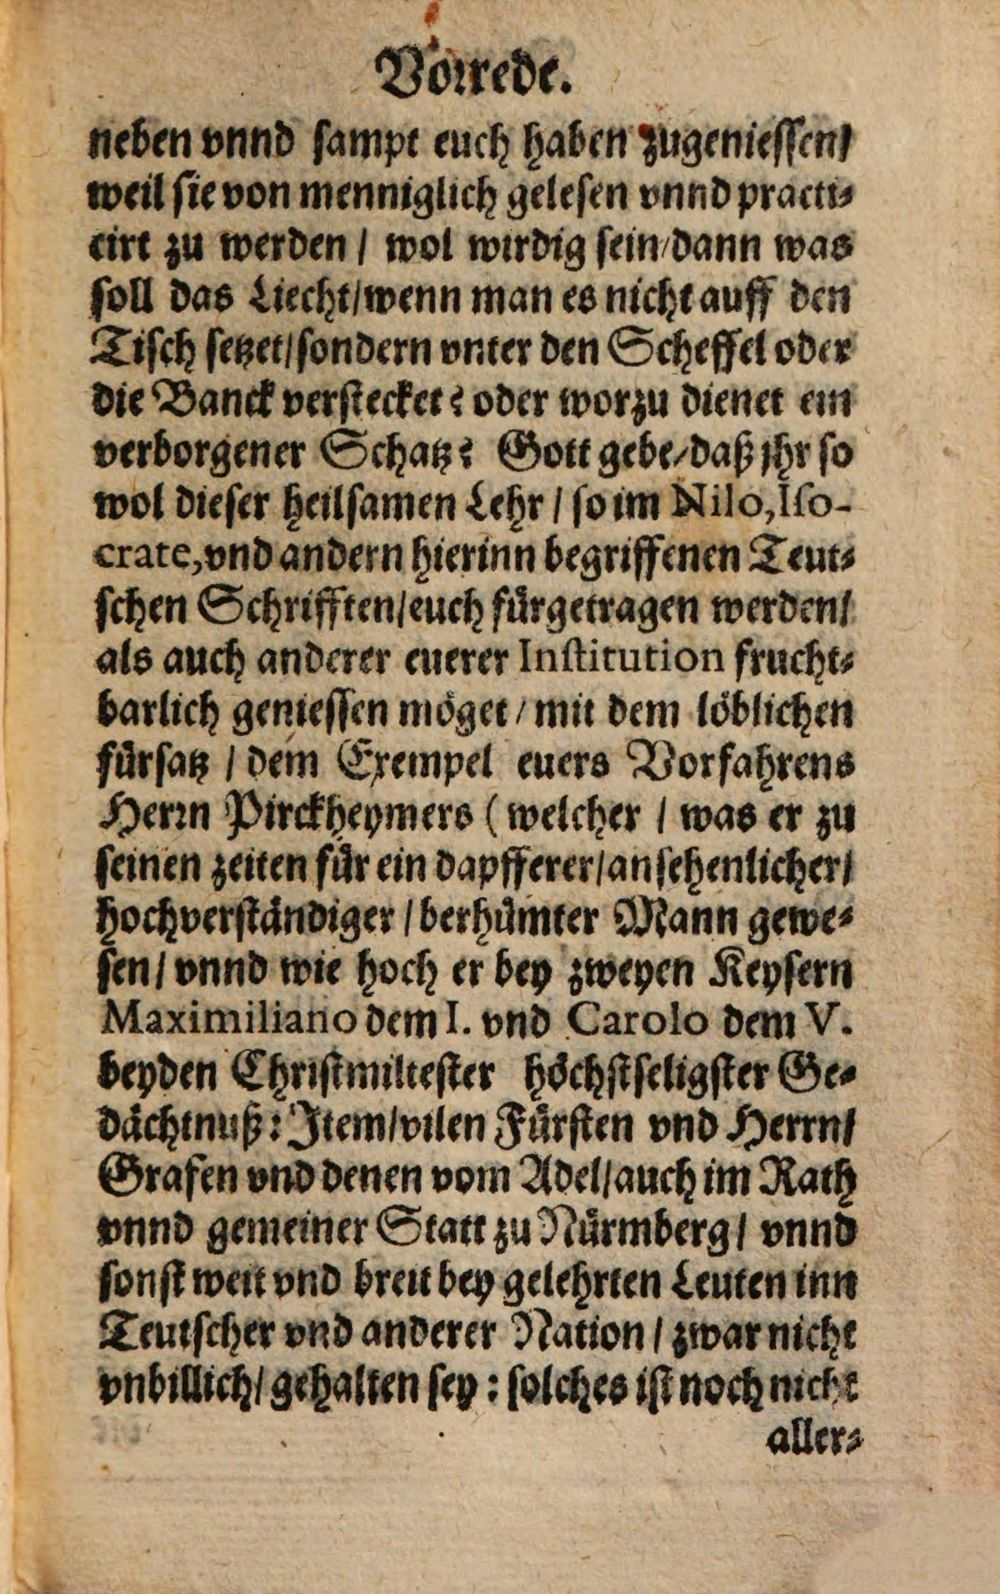 Vorrede.
neben vnnd sampt euch haben zugeniessen/
weil sie von menniglich gelesen vnnd practi-
cirt zu werden / wol wirdig sein/dann was
soll das Liecht/wenn man es nicht auff den
Tisch setzet/sondern vnter den Scheffel oder
die Banck verstecket? oder worzu dienet ein
verborgener Schatz? Gott gebe/daß jhr so
wol dieser heilsamen Lehr / so im Nilo, Iso-
crate, vnd andern hierinn begriffenen Teut-
schen Schrifften/euch fürgetragen werden/
als auch anderer euerer Institution frucht-
barlich geniessen möget / mit dem löblichen
fürsatz / dem Exempel euers Vorfahrens
Herrn Pirckheymers (welcher / was er zu
seinen zeiten für ein dapfferer/ansehenlicher/
hochverständiger / berhümter Mann gewe-
sen/ vnnd wie hoch er bey zweyen Keysern
Maximiliano dem I. vnd Carolo dem V.
beyden Christmiltester höchstseligster Ge-
dächtnuß: Item/vilen Fürsten vnd Herrn/
Grafen vnd denen vom Adel/auch im Rath
vnnd gemeiner Statt zu Nürmberg/ vnnd
sonst weit vnd breit bey gelehrten Leuten inn
Teutscher vnd anderer Nation / zwar nicht
vnbillich/ gehalten sey: solches ist noch nicht
aller-